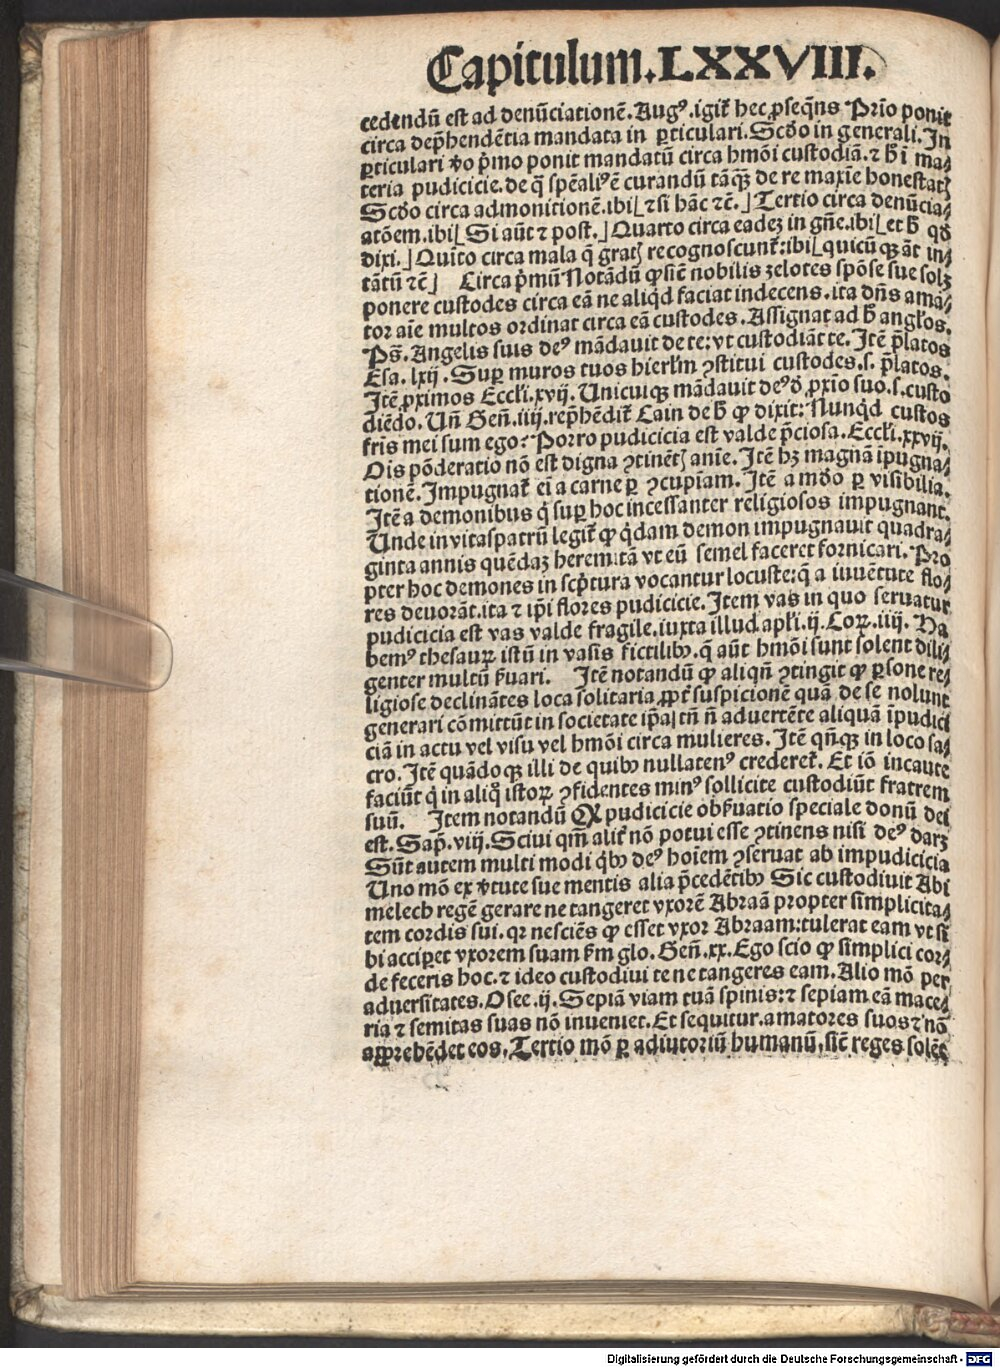 Capitulum.LXXVIII.
cedendū est ad denūciationē. Augꝰ.igiť hec ꝓseq̄ns Prīo ponit
circa dep̄hendētia mandata in ꝑticulari. Scd̄o in generali. In
ꝑticulari ꝟo p̄mo ponit mandatū circa hmōi custodiā.⁊ h̄ ī ma⸗
teria pudicicie.de q̄ spēaliꝰ ē curandū tāꝙ̄ de re maxīe honestatꝭ
Scd̄o circa admonitionē.ibi⌊⁊ si hāc ⁊c̄.⌋Tertio circa denūcia⸗
atōem.ibi⌊Si aūt ⁊ post.⌋Quarto circa eadeꝫ in gn̄e.ibi⌊et h̄ qd̄
dixi.⌋Quīto circa mala q̄ gratꝭ recognoscunť:ibi⌊quicū ꝙ āt in⸗
tātū ⁊c̄⌋ Circa p̄mū Notādū ꝙ sic̄ nobilis zelotes spōse sue solꝫ
ponere custodes circa eā ne aliq̇d faciat indecens.ita dn̄s ama⸗
tor aīe multos ordinat circa eā custodes. Assignat ad h̄ angl̄os.
Ps̄. Angelis suis deꝰ mādavit de te:vt custodiāt te. Itē p̄latos
Esa.lxij. Suꝑ muros tuos hierl̄m ꝯstitui custodes.s.p̄latos.
Itē ꝓximos Eccl̄i.xvij. Unicuiqꝫ mādauit deꝰ đ ꝓxīo suo.s.custo
diēdo. Un̄ Gen̄.iiij.rep̄hēdiť Cain de h̄ ꝙ dixit:Nunq̇d custos
fr̄is mei sum ego? Porro pudicicia est valde p̄ciosa. Eccl̄i.xxvij.
Oīs pōderatio nō est digna ꝯtinētꝭ anīe. Itē hꝫ magnā īpugna⸗
tionē. Impugnať eī a carne ꝑ ꝯcupīam. Itē a mūdo ꝑ visibilia.
Itē a demonibus q̇ suꝑ hoc incessanter religiosos impugnant.
Unde in vitaspatrū legiť ꝙ q̇dam demon impugnauit quadra⸗
ginta annis quēdaꝫ heremitā vt eū semel faceret fornicari. Pro
pter hoc demones in scp̄tura vocantur locuste:q̄ a iuuētute flo⸗
res deuorāt.ita ⁊ ip̄i flores pudicicie. Item vas in quo seruatur
pudicicia est vas valde fragile.iuxta illud apl̄i.ij.Coꝝ.iiij. Ha
bemꝰ thesauꝝ istū in vasis fictilibꝰ.q̄ aūt hmōi sunt solent dili⸗
genter multū ẜuari. Itē notandū ꝙ aliqn̄ ꝯtingit ꝙ ꝑsone re⸗
ligiose declināntes loca solitaria ꝓpť suspicionē quā de se nolunt
generari cōmittūt in societate ip̄a⌋ tn̄ n̄ aduertēte aliquā īpudici
ciā in actu vel visu vel hmōi circa mulieres. Itē qn̄qꝫ in loco sa⸗
cro. Itē quādoqꝫ illi de quibꝰ nullatenꝰ credereť. Et iō incaute
faciūt q̇ in aliq̇ istoꝝ ꝯfidentes minꝰ sollicite custodiūt fratrem
suū. Item notandū Qꝙ pudicicie obẜuatio speciale donū dei
est. Sap̄.viij. Sciui qm̄ aliť nō potui esse ꝯtinens nisi deꝰ darꝫ
Sūt autem multi modi q̇bꝰ deꝰ hoīem ꝯseruat ab impudicicia
Uno mō ex ꝟtute sue mentis alia p̄cedētibꝰ Sic custodiuit Abi
melech regē gerare ne tangeret vxorē Abraā propter simplicita⸗
tem cordis sui. qꝛ nesciēs ꝙ esset vxor Abraam:tulerat eam vt si
bi acciꝑet vxorem suam ẜm glo. Gen̄.xx. Ego scio ꝙ simplici cor⸗
de feceris hoc.⁊ ideo custodiui te ne tangeres eam. Alio mō per
aduersitates. Osee.ij. Sepiā viam tuā spinis:⁊ sepiam eā mace⸗
ria ⁊ semitas suas nō inueniet. Et sequitur.amatores suos ⁊ nō
apprehēdet eos. Tertio mō ꝑ adiutoriū humanū, sic̄ reges solēt
Digitalisierung gefördert durch die Deutsche Forschungsgemeinschaft - DFG